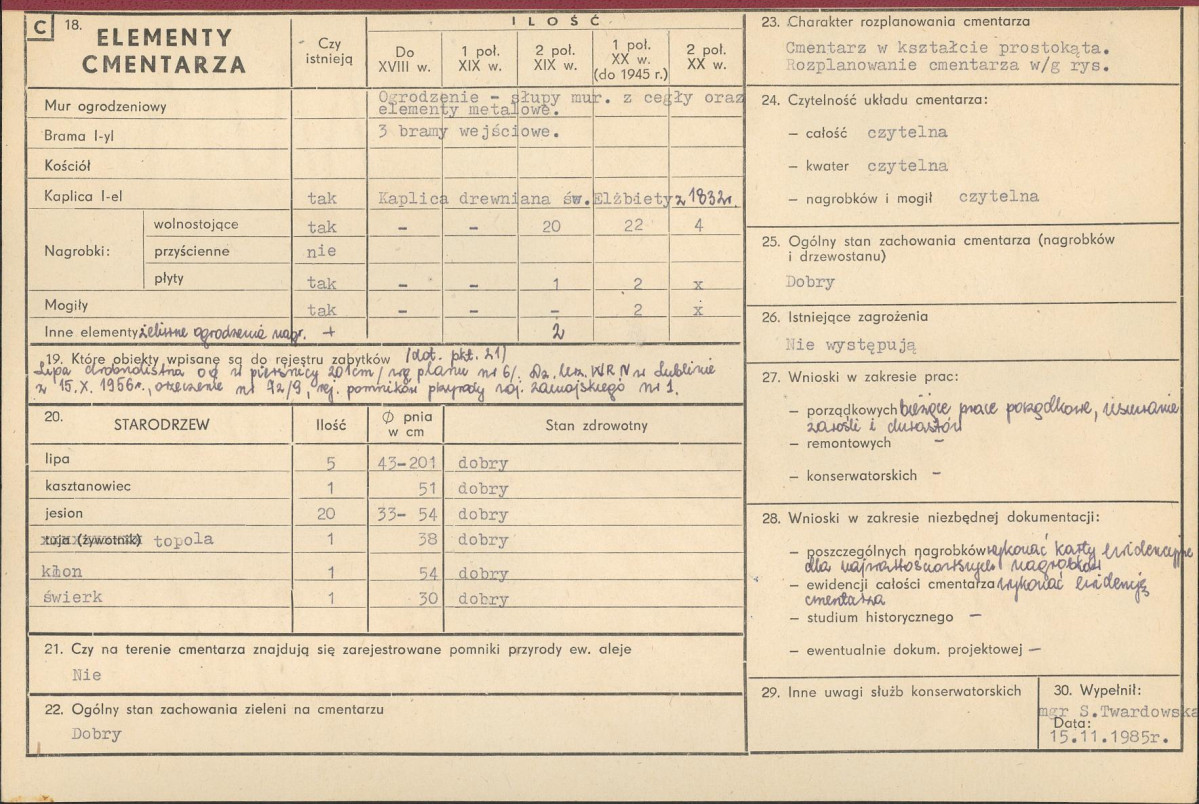 C 18. ELEMENTY CMENTARZA
Czy istnieją
ILOŚĆ
Do XVIII w.
1 poł. XIX w.
2 poł. XIX w.
1 poł. XX w. (do 1945 r.)
2 poł. XX w.
Mur ogrodzeniowy Ogrodzenie - słupy mur. z cegły oraz
elementy metalowe.
Brama I-yl 3 bramy wejściowe.
Kościół
Kaplica I-el tak Kaplica drewniana św. Elżbiety z 1832r.
Nagrobki:
wolnostojące tak - - 20 22 4
przyścienne nie
płyty tak - - 1 2 x
Mogiły tak - - - 2 x
Inne elementy żeliwne ogrodzenia nagr. + 2
19. Które obiekty wpisane są do rejestru zabytków (dot. pkt. 21)
Lipa drobnolistna o φ w pierśnicy 201cm/wg planu nr 6/. Dz. Urz. WRN w Lublinie
z 15.X.1956r., orzeczenie nr 72/9, rej. pomników przyrody woj. zamojskiego nr 1.
20. STARODRZEW Ilość Ø pnia w cm Stan zdrowotny
lipa 5 43-201 dobry
kasztanowiec 1 51 dobry
jesion 20 33- 54 dobry
tuja (żywotnik) topola 1 38 dobry
klon 1 54 dobry
świerk 1 30 dobry
21. Czy na terenie cmentarza znajdują się zarejestrowane pomniki przyrody ew. aleje
Nie
22. Ogólny stan zachowania zieleni na cmentarzu
Dobry
23. Charakter rozplanowania cmentarza
Cmentarz w kształcie prostokąta.
Rozplanowanie cmentarza w/g rys.
24. Czytelność układu cmentarza:
– całość czytelna
– kwater czytelna
– nagrobków i mogił czytelna
25. Ogólny stan zachowania cmentarza (nagrobków
i drzewostanu)
Dobry
26. Istniejące zagrożenia
Nie występują
27. Wnioski w zakresie prac:
– porządkowych bieżące prace porządkowe, usuwanie
zarośli i chwastów
– remontowych -
– konserwatorskich -
28. Wnioski w zakresie niezbędnej dokumentacji:
– poszczególnych nagrobków wykonać karty ewidencyjne
dla najwartościowszych nagrobków
– ewidencji całości cmentarza wykonać ewidencję
cmentarza
– studium historycznego -
– ewentualnie dokum. projektowej -
29. Inne uwagi służb konserwatorskich
30. Wypełnił:
mgr S.Twardowska
Data:
15.11.1985r.